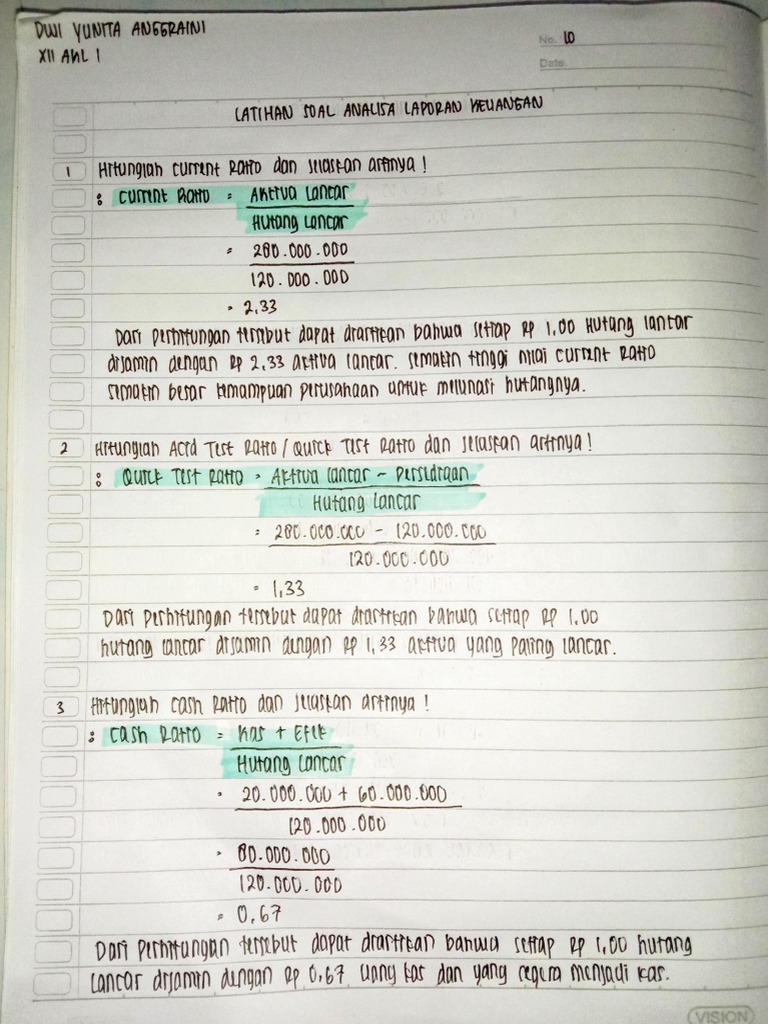 DWI YUNITA ANGGRAINI
XII AKL 1
No. 10
Date.
LATIHAN SOAL ANALISA LAPORAN KEUANGAN
1 Hitunglah current Ratio dan jelaskan artinya !
: Current Ratio = Aktiva Lancar
Hutang Lancar
= 280.000.000
120.000.000
= 2,33
Dari perhitungan tersebut dapat diartikan bahwa setiap Rp 1,00 Hutang lancar
dijamin dengan Rp 2,33 aktiva lancar. Semakin tinggi nilai current Ratio
semakin besar kemampuan perusahaan untuk melunasi hutangnya.
2 Hitunglah Acid Test Ratio / Quick Test Ratio dan jelaskan artinya !
: Quick Test Ratio = Aktiva lancar - Persediaan
Hutang Lancar
= 280.000.000 - 120.000.000
120.000.000
= 1,33
Dari perhitungan tersebut dapat diartikan bahwa setiap Rp 1,00
hutang lancar dijamin dengan Rp 1,33 aktiva yang paling lancar.
3 Hitunglah Cash Ratio dan jelaskan artinya !
: Cash Ratio = Kas + Efek
Hutang Lancar
= 20.000.000 + 60.000.000
120.000.000
= 80.000.000
120.000.000
= 0,67
Dari perhitungan tersebut dapat diartikan bahwa setiap Rp 1,00 hutang
lancar dijamin dengan Rp 0,67 uang kas dan yang segera menjadi kas.
VISION